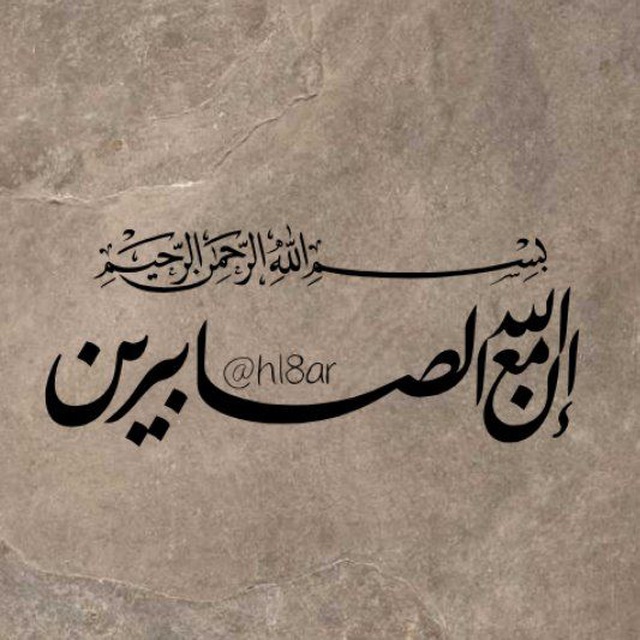 بِسْمِ اللهِ الرَّحْمَنِ الرَّحِيْمِ
إن الله مع الصابرين
@hl8ar